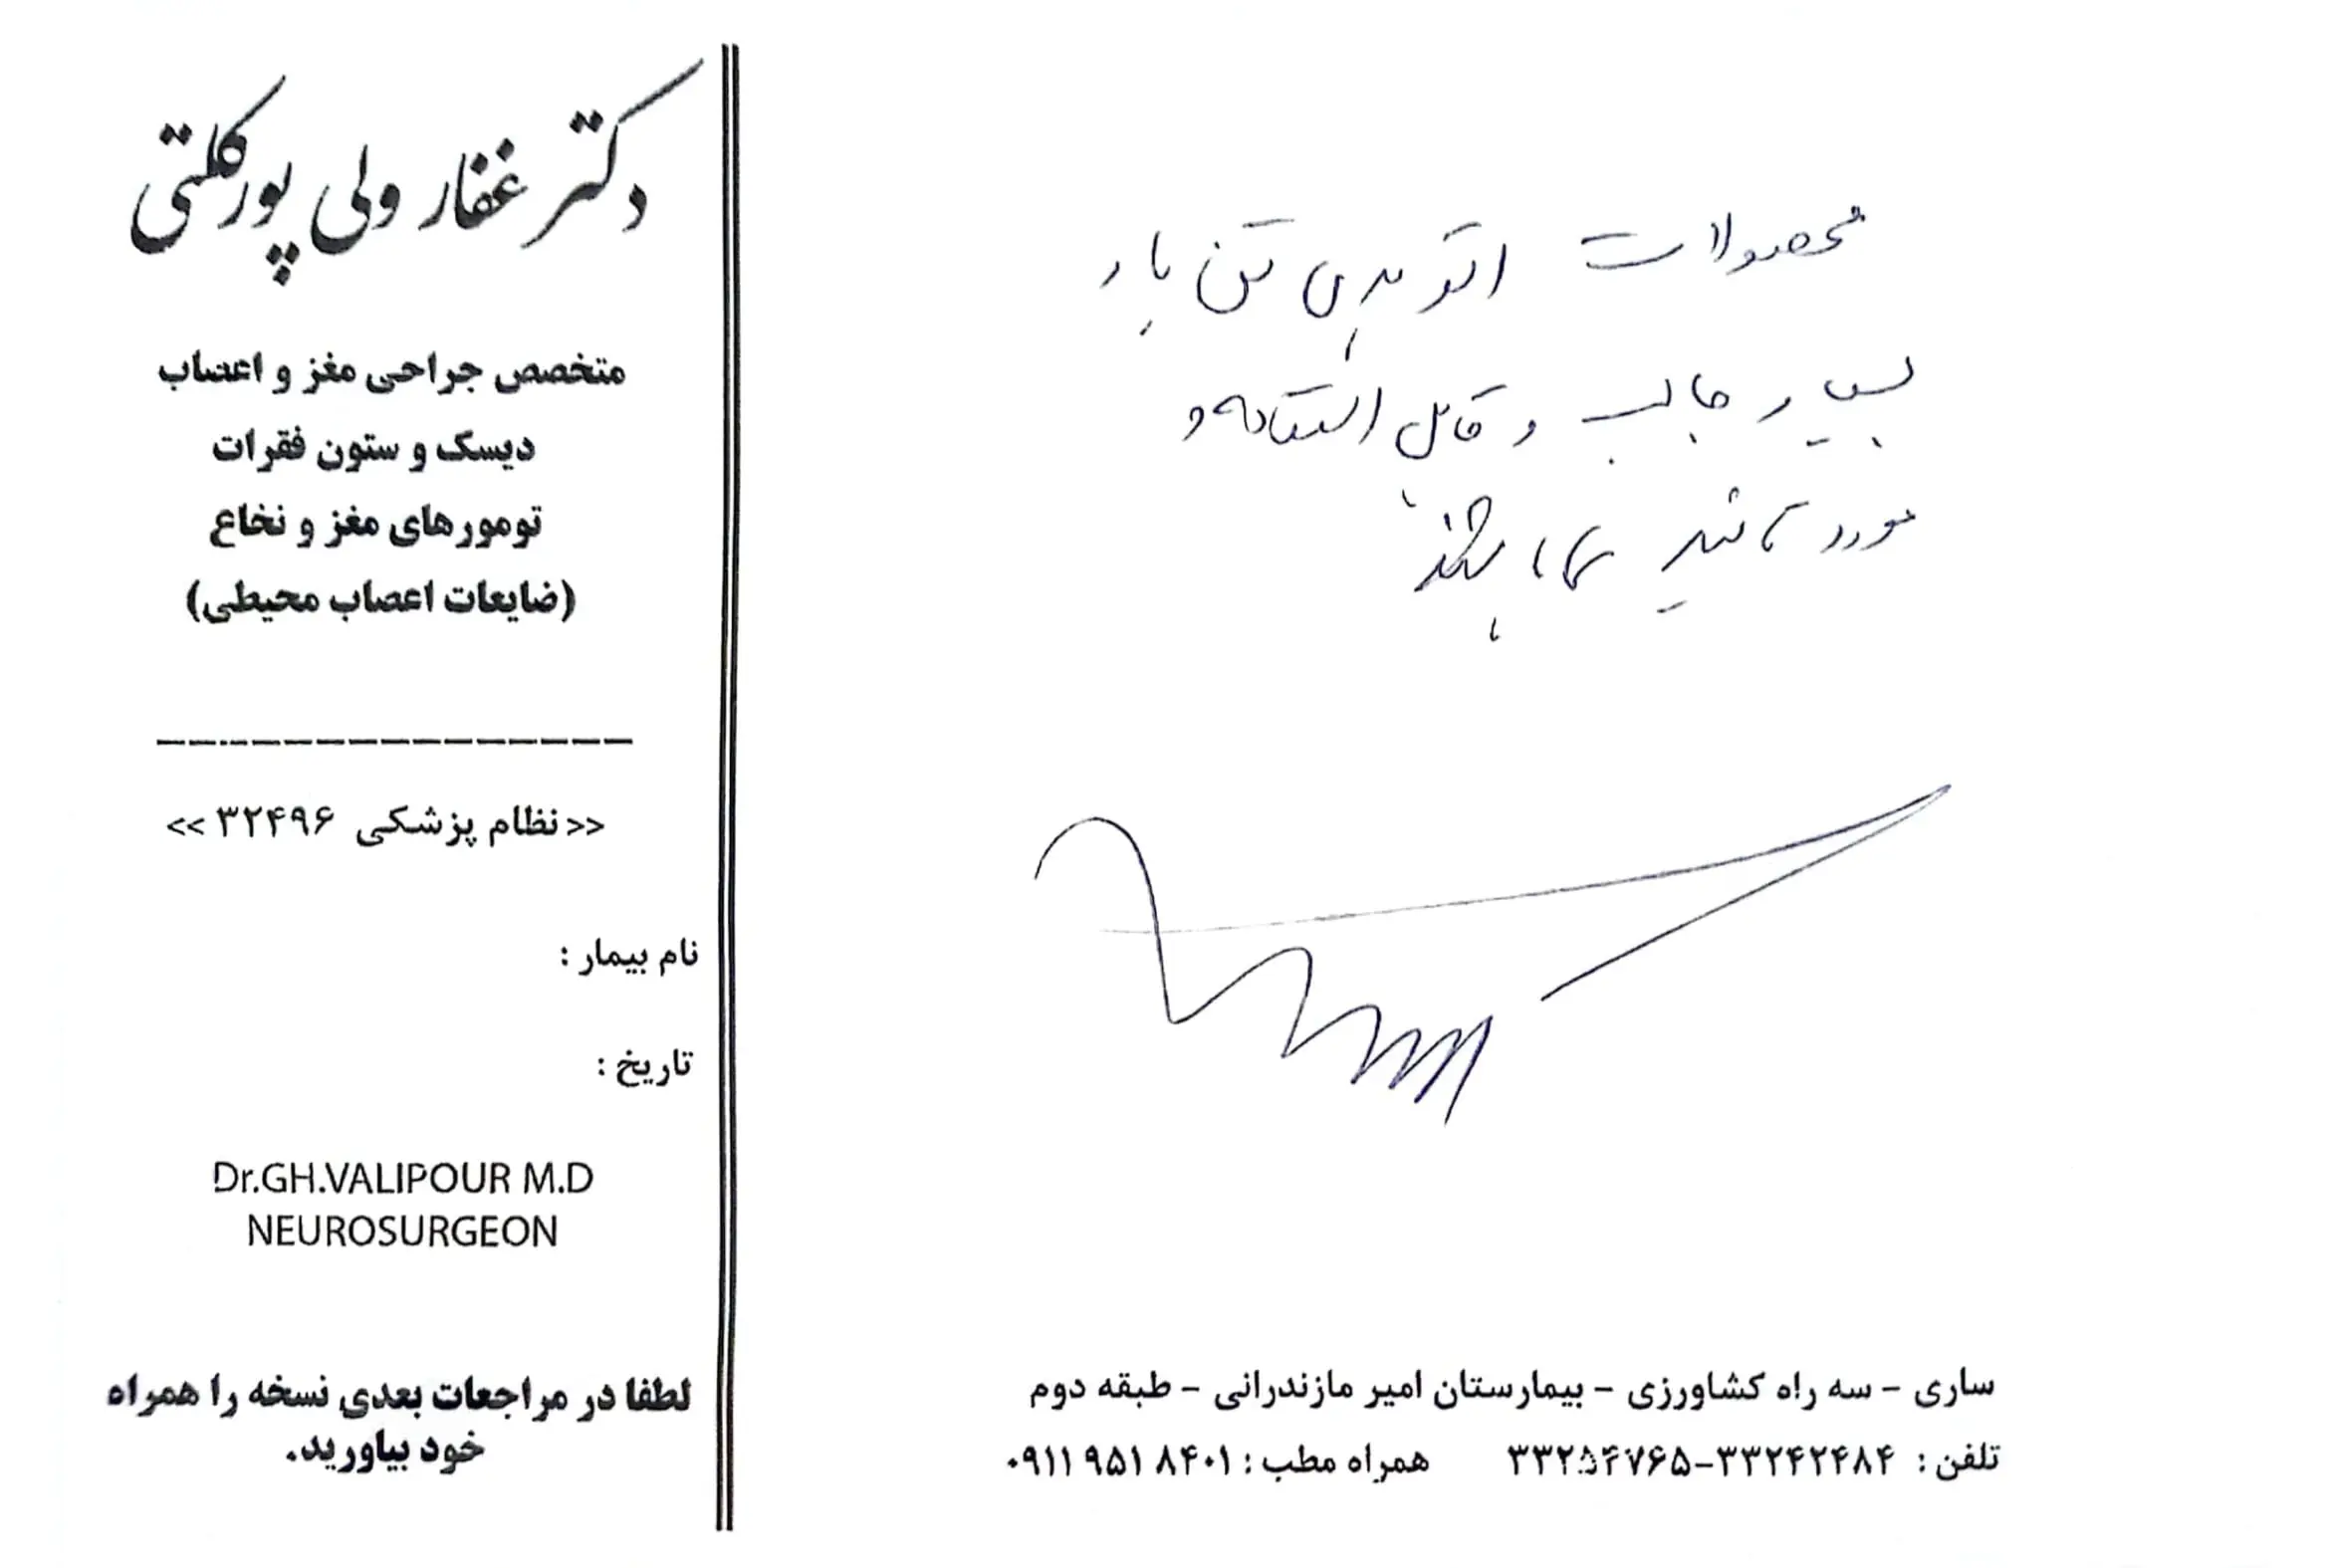 دکتر غفار ولی پور کلتی
متخصص جراحی مغز و اعصاب
دیسک و ستون فقرات
تومورهای مغز و نخاع
(ضایعات اعصاب محیطی)
<<نظام پزشکی ۳۲۴۹۶>>
نام بیمار :
تاریخ :
Dr.GH.VALIPOUR M.D
NEUROSURGEON
لطفا در مراجعات بعدی نسخه را همراه
خود بیاورید.
محصولات ارتوپدی تن یار
بسیار جالب و قابل استفاده و
مورد تائید می باشند
ساری - سه راه کشاورزی - بیمارستان امیر مازندرانی - طبقه دوم
تلفن : ۳۳۲۴۲۴۸۴-۳۳۲۵۴۷۶۵ همراه مطب : ۰۹۱۱ ۹۵۱ ۸۴۰۱